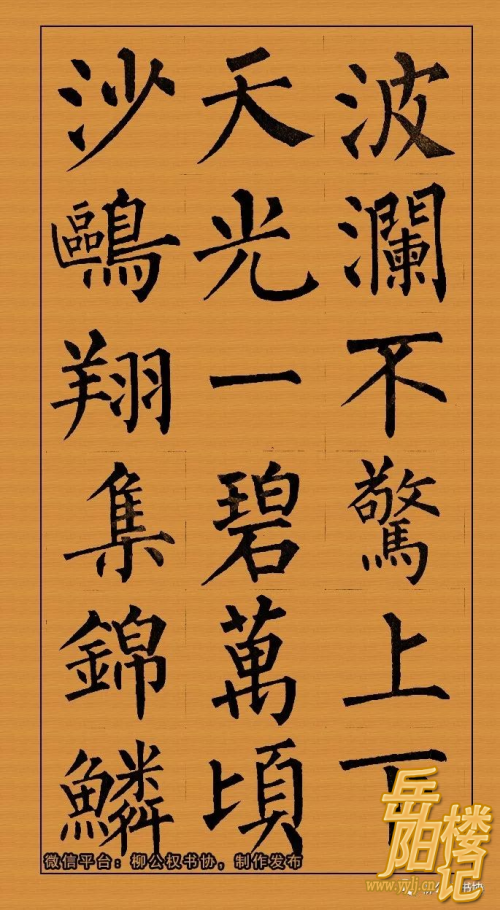 波瀾不驚上下
天光一碧萬頃
沙鷗翔集錦鱗
微信平台：柳公权书协，制作发布
岳阳楼记
www.yylj.cn